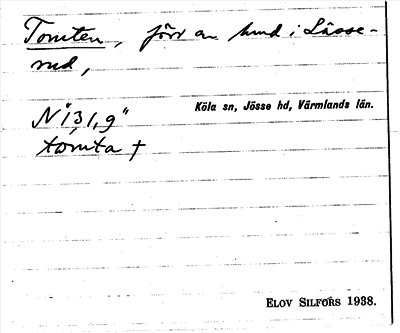 Tomten, förr an hmd i Lässe-
rud,
Köla sn, Jösse hd, Värmlands län.
N 131,9"
tòmta †
ELOV SILFORS 1938.